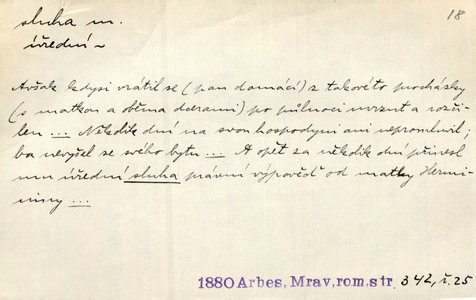 sluha m.
úřední ~
18
Avšak kdysi vrátil se (pan domácí) z takovéto procházky
(s matkou a oběma dcerami) po půlnoci mrzut a rozčí-
len ... Několik dní na svou hospodyni ani nepromluvil,
ba nevyšel ze svého bytu ... A opět za několik dní přinesl
mu úřední sluha právní výpověď od matky Hermi-
niny ...
1880 Arbes, Mrav. rom. str. 342, ř. 25